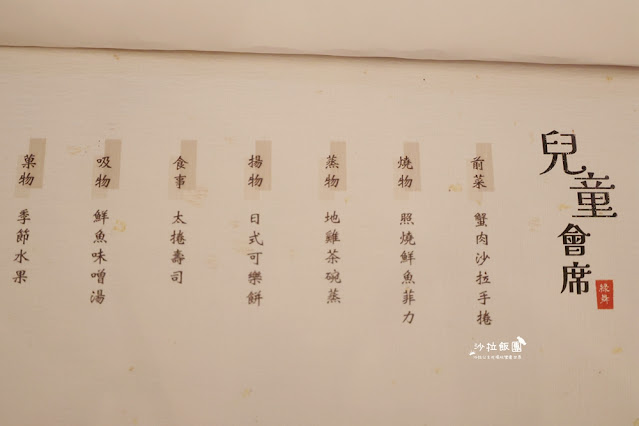 兒童會席
前菜 蟹肉沙拉手捲
燒物 照燒鮮魚菲力
蒸物 地雞茶碗蒸
揚物 日式可樂餅
食事 太捲壽司
吸物 鮮魚味噌湯
菓物 季節水果
沙拉飯團